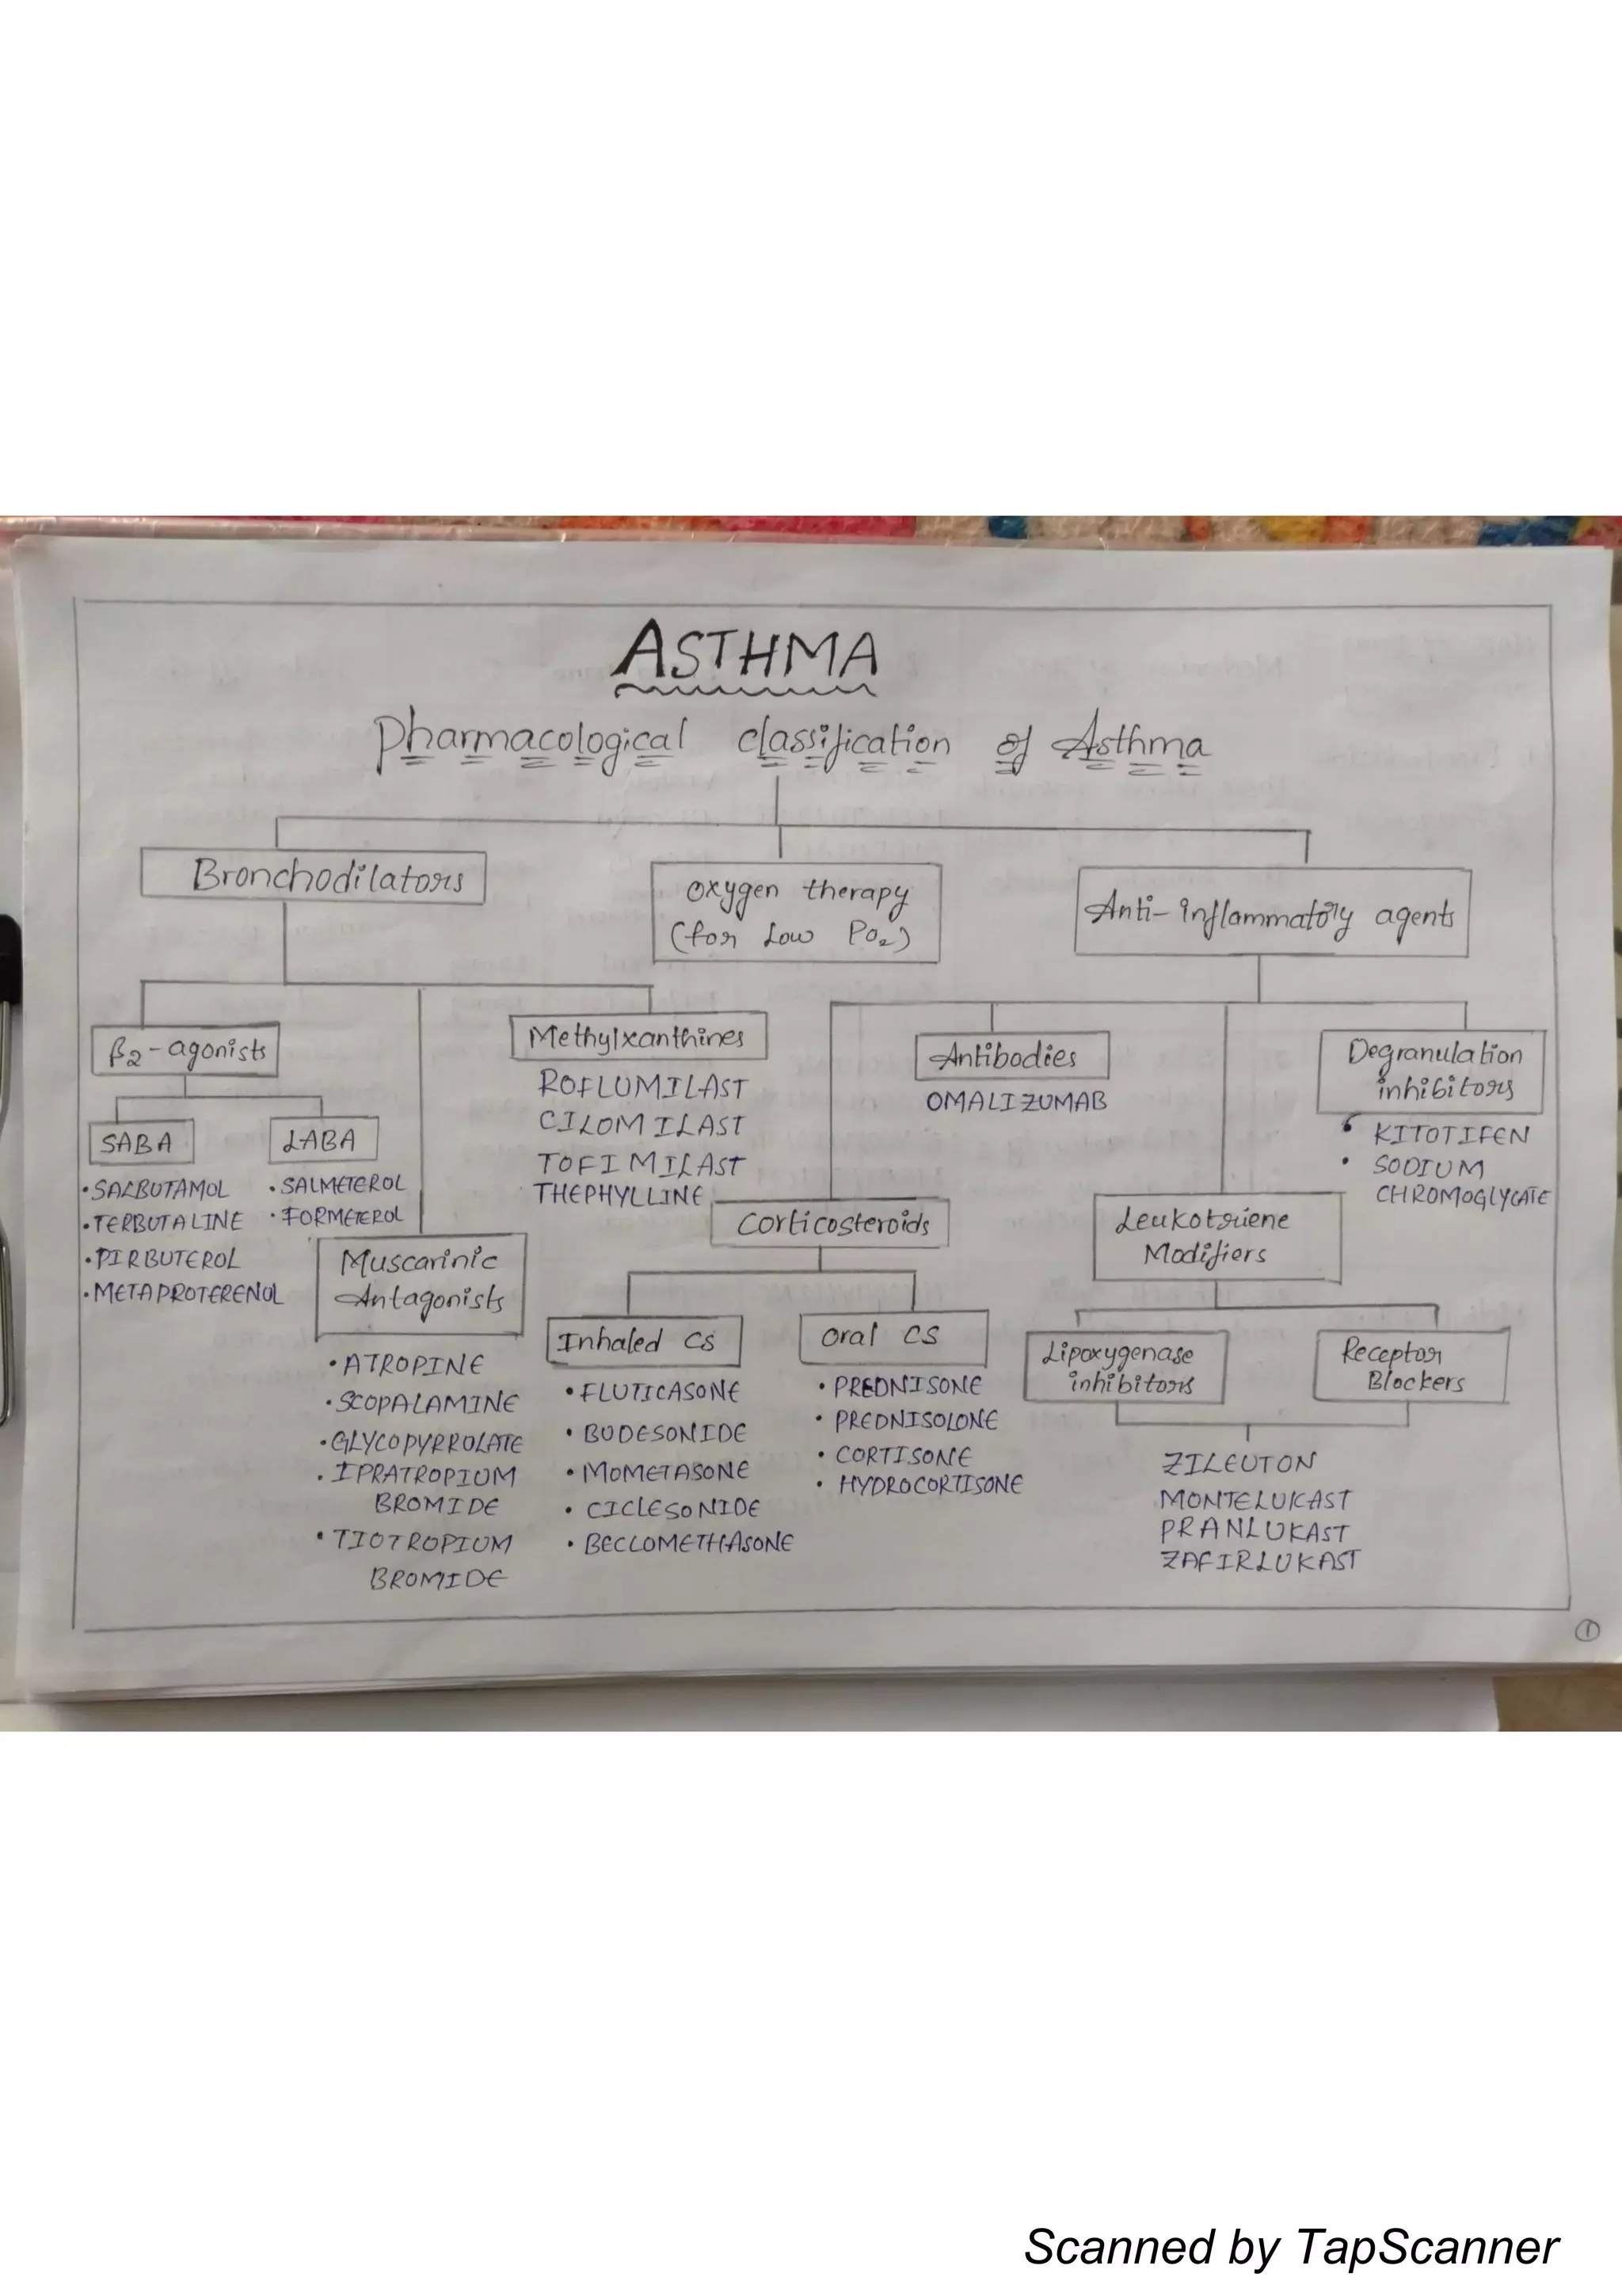 ASTHMA
Pharmacological classification of Asthma
Bronchodilators
Oxygen therapy
(for Low PO2)
Anti-inflammatory agents
β2-agonists
SABA
• SALBUTAMOL
• TERBUTALINE
• PIRBUTEROL
• METAPROTERENOL
LABA
• SALMETEROL
• FORMETEROL
Muscarinic
Antagonists
• ATROPINE
• SCOPALAMINE
• GLYCOPYRROLATE
• IPRATROPIUM
BROMIDE
• TIOTROPIUM
BROMIDE
Methylxanthines
ROFLUMILAST
CILOMILAST
TOFIMILAST
THEPHYLLINE
Corticosteroids
Inhaled CS
• FLUTICASONE
• BUDESONIDE
• MOMETASONE
• CICLESONIDE
• BECLOMETHASONE
Oral CS
• PREDNISONE
• PREDNISOLONE
• CORTISONE
• HYDROCORTISONE
Antibodies
OMALIZUMAB
Leukotriene
Modifiers
Lipoxygenase
inhibitors
Receptor
Blockers
ZILEUTON
MONTELUKAST
PRANLUKAST
ZAFIRLUKAST
Degranulation
inhibitors
• KITOTIFEN
• SODIUM
CHROMOGLYCATE
1
Scanned by TapScanner